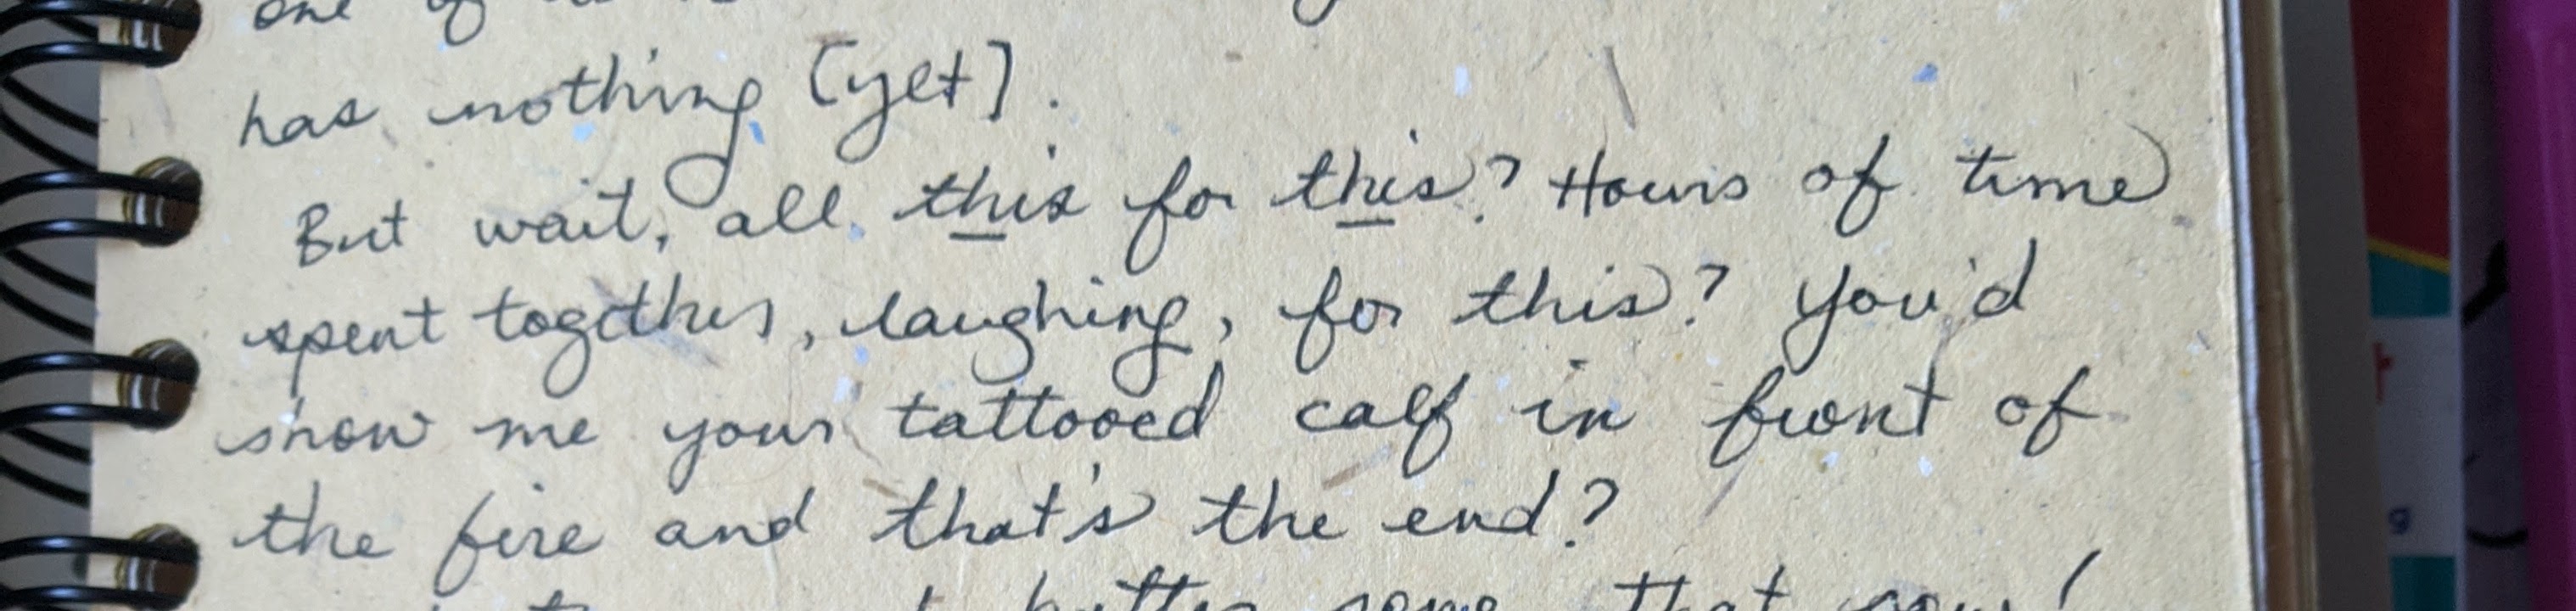 one of
has nothing [yet].
But wait, all this for this? Hours of time
spent together, laughing, for this? You'd
show me your tattooed calf in front of
the fire and that's the end?
better some that